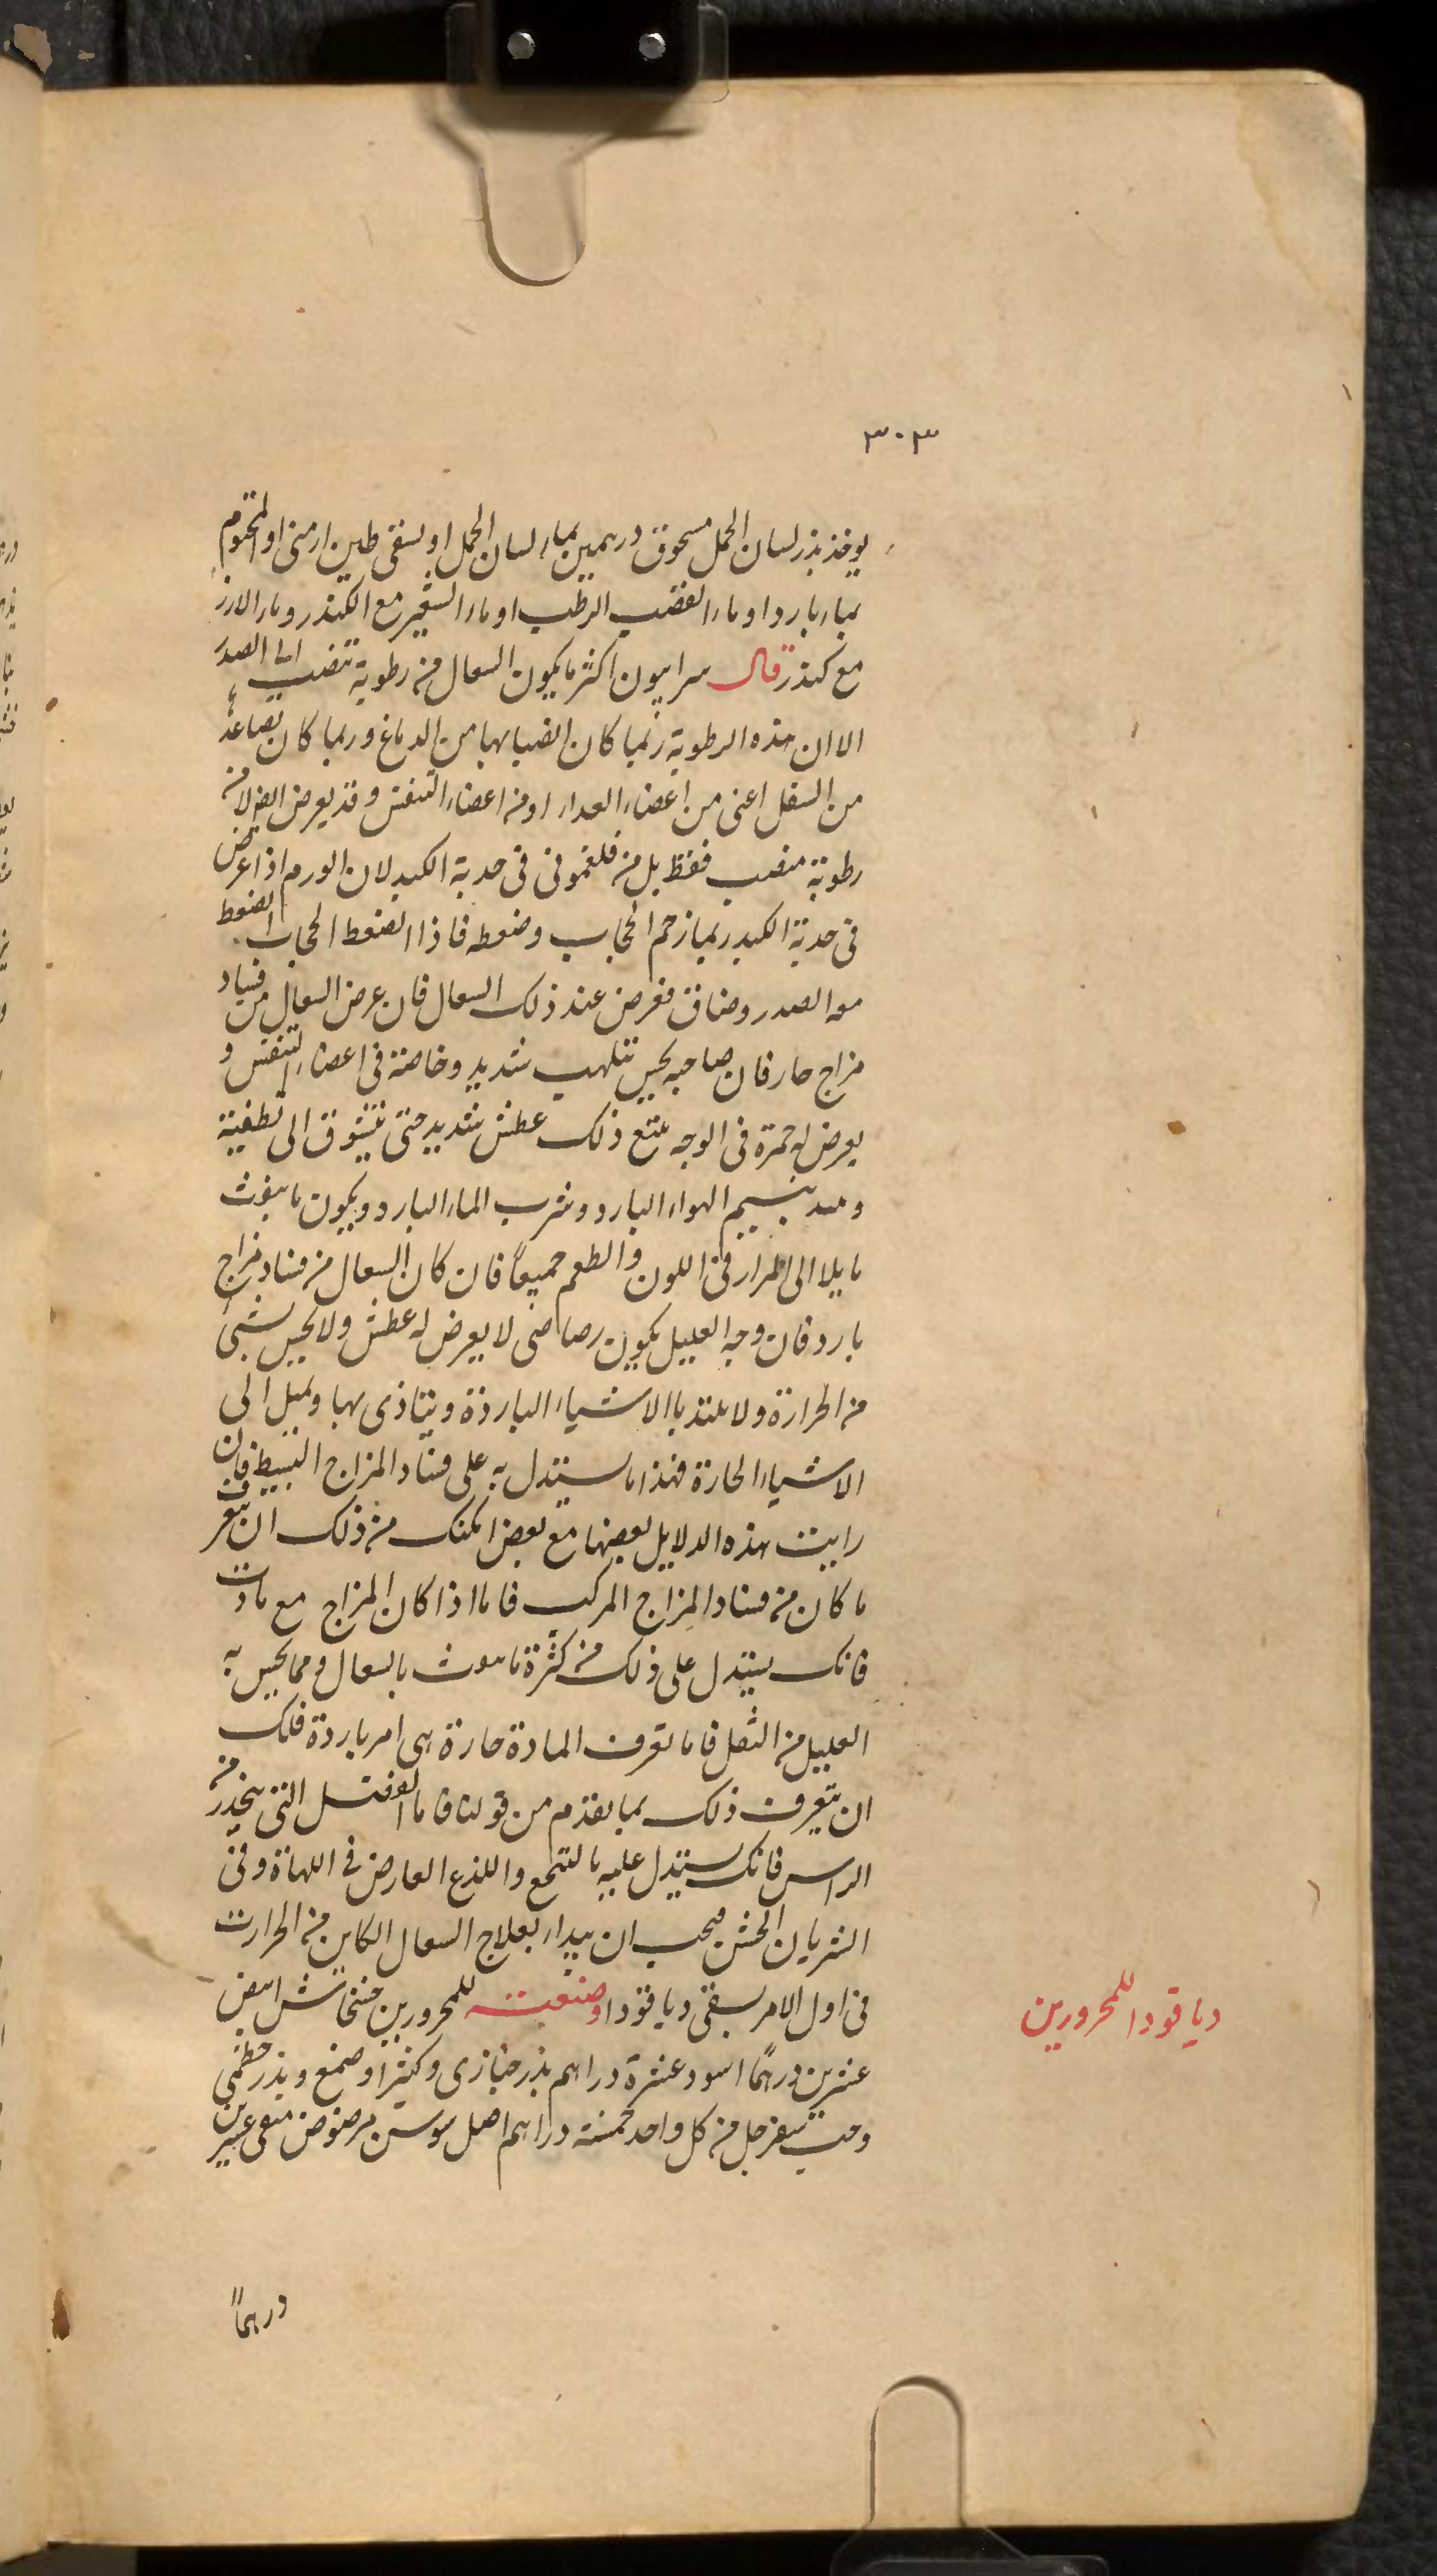 ٣٠٣
يوخذ بزر لسان الحمل مسحوق درهمين بماء لسان الحمل او يسقى طين ارمنى او المختوم
بماء بارد او ماء القضب الرطب او ماء الشعير مع الكندر وماء الارز
مع كندر قال سرابيون اكثر ما يكون السعال من رطوبة تنصب الى الصدر
الا ان هذه الرطوبة ربما كان انصبابها من الدماغ وربما كان تصاعد
من السفل اعنى من اعضاء الغداء او من اعضاء التنفس وقد يعرض ايض لا من
رطوبة منصب فقط بل من فلغمونى فى حدبة الكبد لان الورم اذا عرض
فى حدبة الكبد ربما زحم الحجاب وضغطه فاذا انضغط الحجاب انضغط
معه الصدر وضاق فعرض عند ذلك السعال فان عرض السعال من فساد
مزاج حار فان صاحبه يحس بتلهب شديد وخاصة فى اعضاء التنفس و
يعرض له حمرة فى الوجه يتبع ذلك عطش شديد حتى يتشوق الى تطفية
بنسيم الهواء البارد وشرب الماء البارد ويكون ما ينفث
مايلا الى المرار فى اللون والطعم جميعاً فان كان السعال من فساد مزاج
بارد فان وجه العليل يكون رصاصى لا يعرض له عطش ولا يحس بشئ
من الحرارة ولا يلتذ باالاشياء الباردة ويتاذى بها ويميل الى
الاشياء الحارة فهذا ما يستدل به على فساد المزاج البسيط فان
رايت هذه الدلايل بعضها مع بعض امكنك من ذلك ان تتعرف
ما كان من فساد المزاج المركب فاما اذا كان المزاج مع مادت
فانك يستدل على ذلك من كثرة ما ينفث بالسعال ومما يحس به
العليل من الثقل فاما تعرف المادة حارة هى ام باردة فلك
ان تتعرف ذلك بما تقدم من قولنا فاما الفضل التى ينحدر من
الراس فانك يستدل عليه بالتنحنح واللذع العارض فى اللهاة وفى
الشريان الخشن فيجب ان يبداء بعلاج السعال الكاين من الحرارت
فى اول الامر يسقى دياقودا وصنعته للمحرورين خشخاش ابيض
عشرين درهماً اسود عشرة دراهم بذر خبازى وكثيرا وصمغ وبذر خطمى
وحب سفرجل من كل واحد خمسة دراهم اصل سوسن مرضوض منقى عشرين
دياقودا للمحرورين
درهماً